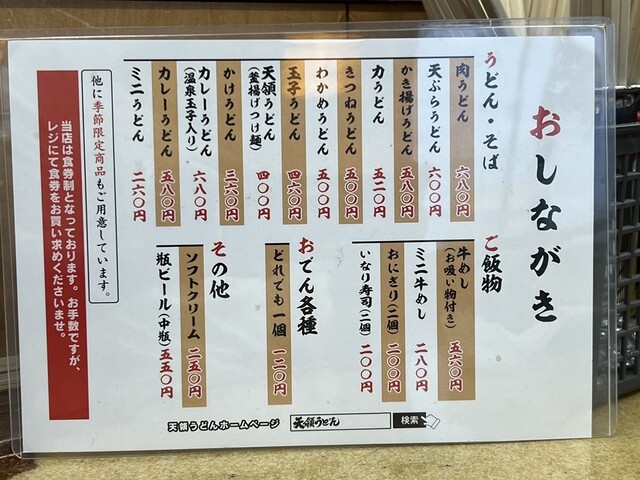 おしながき
うどん・そば
肉うどん 六八〇円
天ぷらうどん 六〇〇円
かき揚げうどん 五八〇円
力うどん 五二〇円
きつねうどん 五〇〇円
わかめうどん 五〇〇円
玉子うどん 四六〇円
天領うどん
(釜揚げつけ麺) 四〇〇円
かけうどん 三六〇円
カレーうどん
(温泉玉子入り) 六八〇円
カレーうどん 五八〇円
ミニうどん 二六〇円
ご飯物
牛めし
(お吸い物付き) 五六〇円
ミニ牛めし 二八〇円
おにぎり(二個) 二〇〇円
いなり寿司(二個) 二〇〇円
おでん各種
どれでも一個 一二〇円
その他
ソフトクリーム 二五〇円
瓶ビール(中瓶) 五五〇円
他に季節限定商品もご用意しています。
当店は食券制となっております。お手数ですが、
レジにて食券をお買い求めくださいませ。
天領うどんホームページ 天領うどん 検索